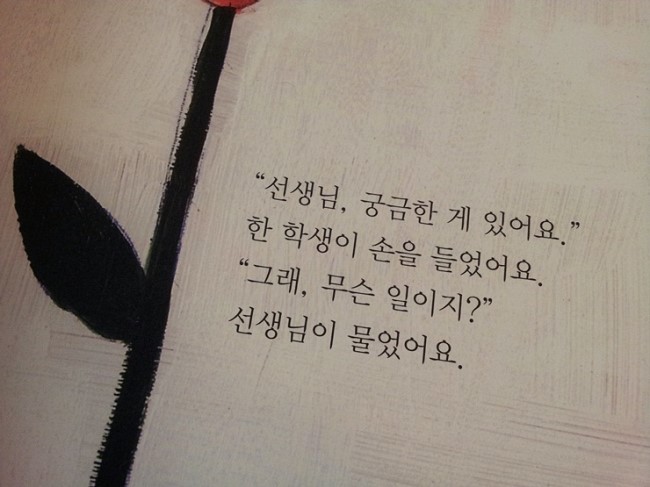 “선생님, 궁금한 게 있어요.”
한 학생이 손을 들었어요.
“그래, 무슨 일이지?”
선생님이 물었어요.